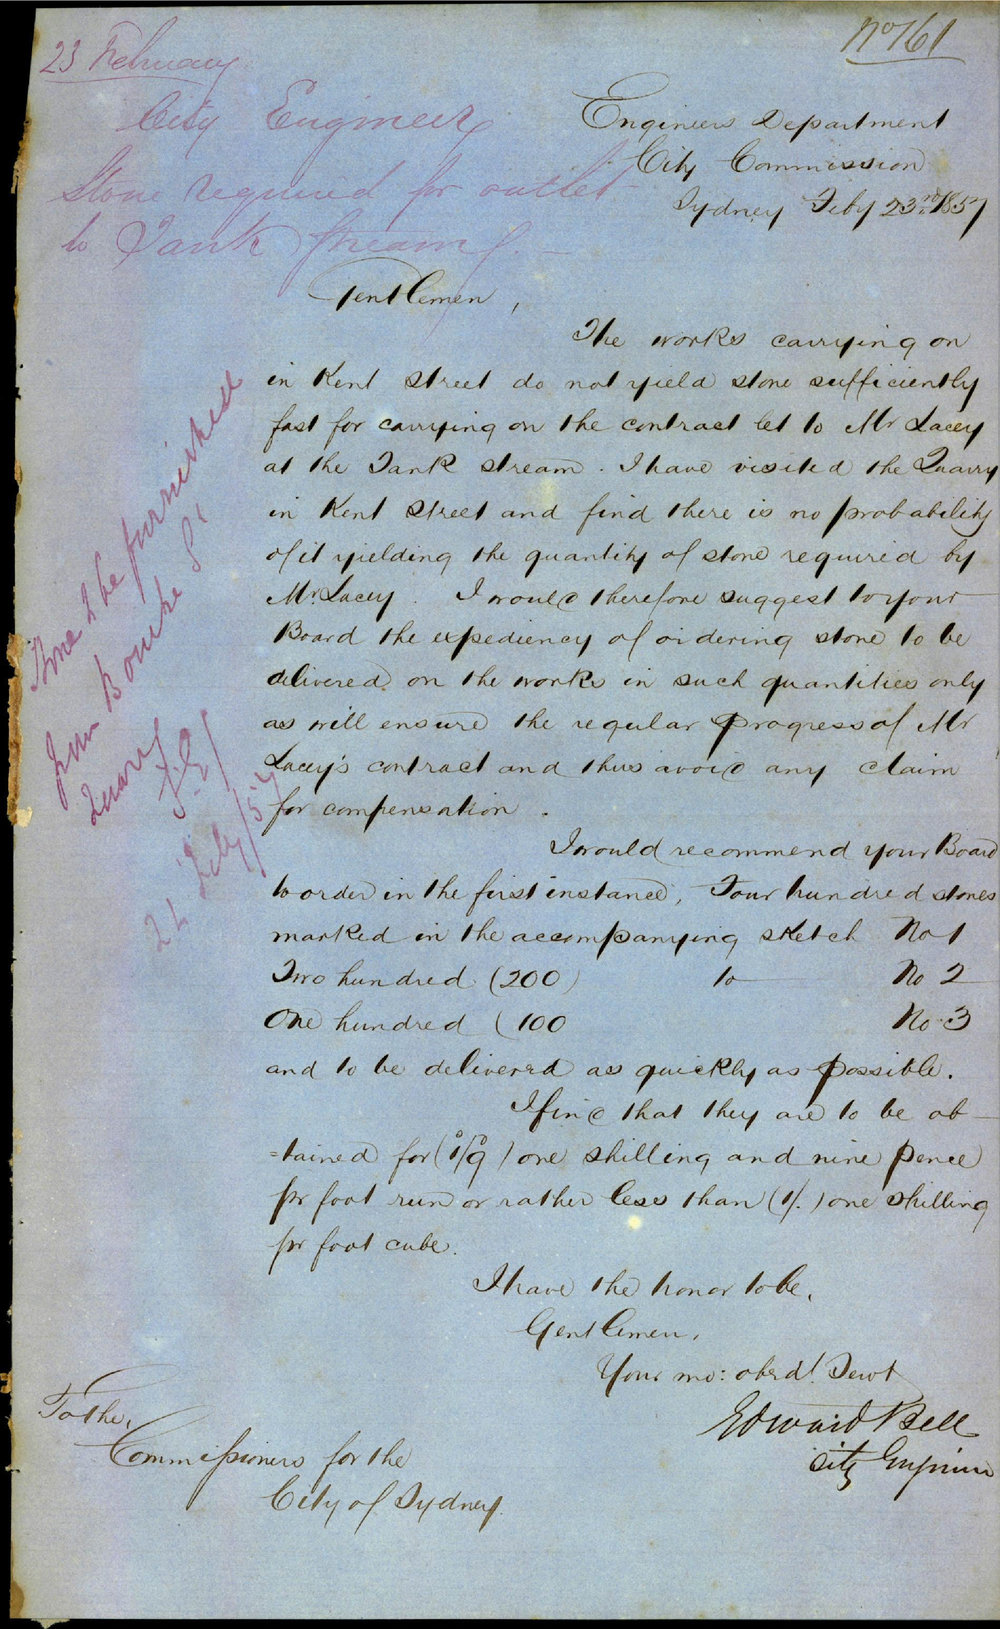 No 161
23 February
City Engineer
Stone required for outlet
to Tank Stream.
Engineers Department
City Commission
Sydney Feby 23rd 1857
Gentlemen,
The works carrying on
in Kent Street do not yield stone sufficiently
fast for carrying on the contract let to Mr Lacey
at the Tank Stream. I have visited the Quarry
in Kent Street and find there is no probability
of it yielding the quantity of stone required by
Mr. Lacey. I would therefore suggest to your
Board the expediency of ordering stone to be
delivered on the works in such quantities only
as will ensure the regular progress of Mr
Lacey's contract and thus avoid any claim
for compensation.
I would recommend your Board
to order in the first instance, Four hundred stones
marked in the accompanying sketch No 1
Two hundred (200) to No 2
One hundred (100 No. 3
and to be delivered as quickly as possible.
I find that they are to be ob-
=tained for (1/9) one shilling and nine pence
pr foot run or rather less than (1/.) one shilling
pr foot cube.
I have the honor to be,
Gentlemen,
Your mo: obed! Servt
Edward Bell
City Engineer
To the,
Commissioners for the
City of Sydney
Stone to be furnished
from Bourke St
Quarry
24 Feby/57